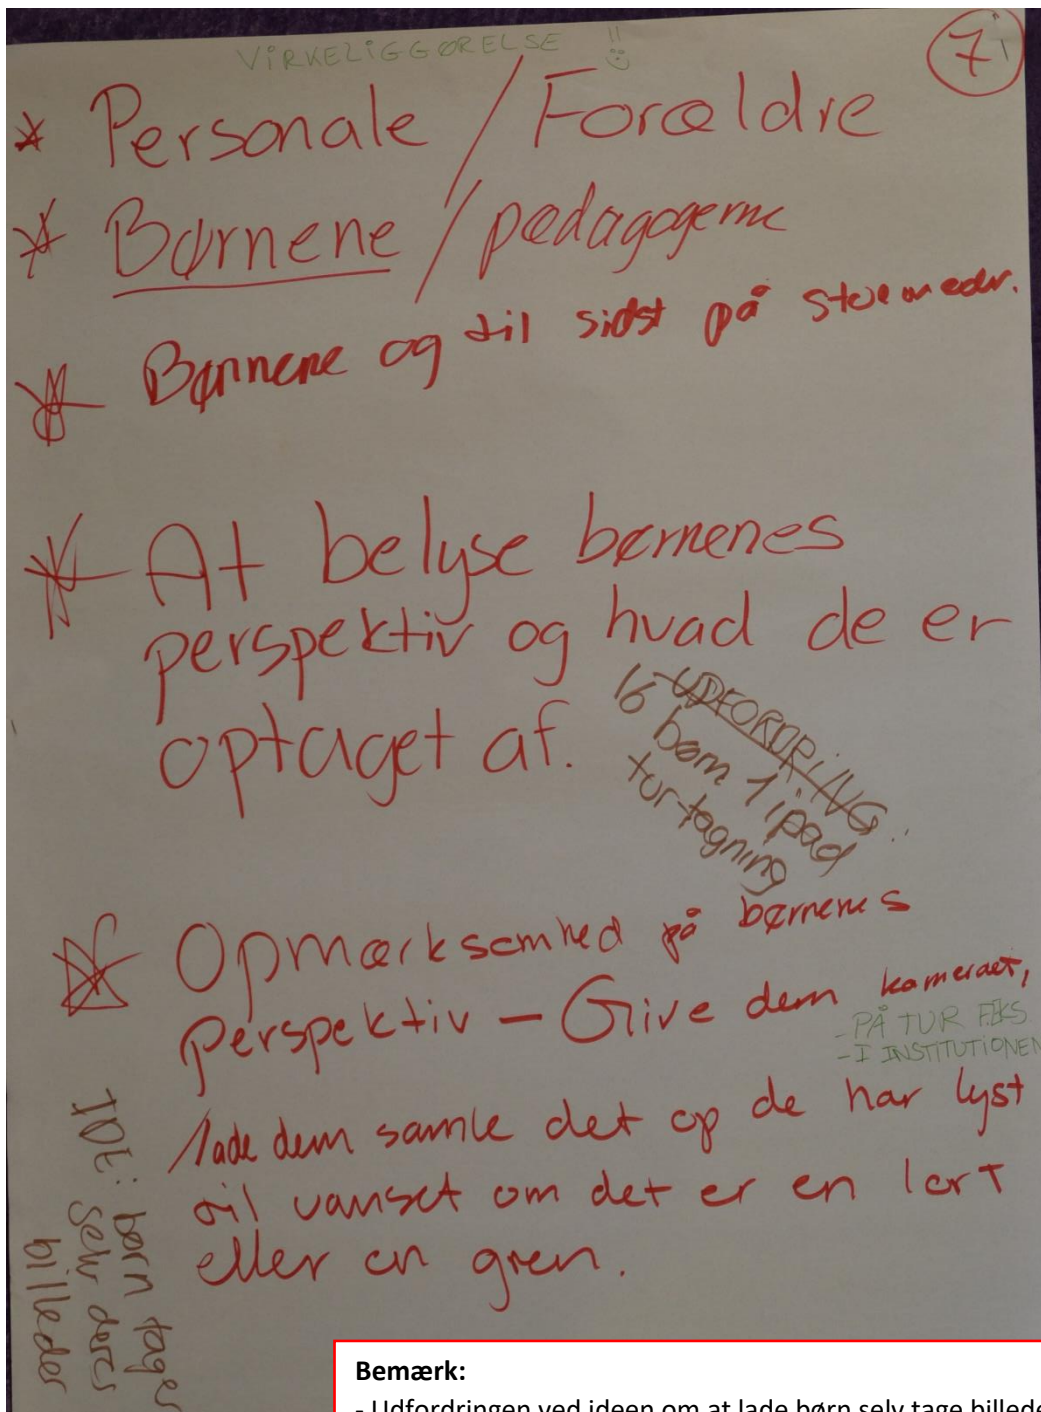 VIRKELIGGØRELSE !!
7
* Personale / Forældre
* Børnene / pædagogerne
* Børnene og til sidst på stuemedr.
* At belyse børnenes
perspektiv og hvad de er
optaget af.
UDFORDRING:
16 børn 1 ipad
tur-tagning
* Opmærksomhed på børnenes
perspektiv – Give dem kameraet,
- PÅ TUR FEKS
- I INSTITUTIONEN
lade dem samle det op de har lyst
til uanset om det er en lort
eller en gren.
IDE: børn tager
selv deres
billeder
Bemærk:
- Udfordringen ved ideen om at lade børn selv tage billede